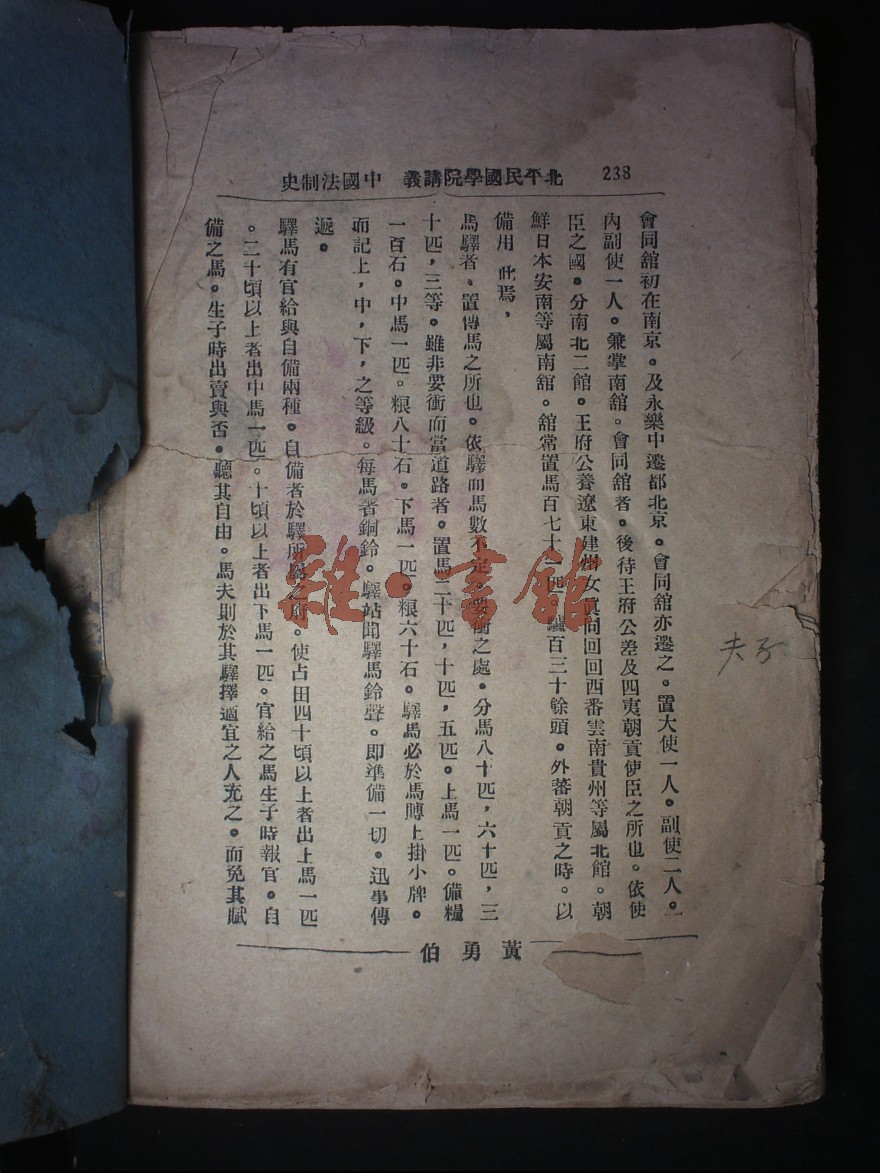 238 北平民國學院講義 中國法制史
會同舘初在南京。及永樂中遷都北京。會同舘亦遷之。置大使一人。副使二人。一
內副使一人。兼掌南舘。會同舘者。後待王府公差及四夷朝貢使臣之所也。依使
臣之國。分南北二館。王府公養遼東建州女眞向回回西番雲南貴州等屬北館。朝
鮮日本安南等屬南舘。舘常置馬百七十一匹。驢百三十餘頭。外蕃朝貢之時。以
備用 此焉，
馬驛者、置傳馬之所也。依驛而馬數不定。要衝之處。分馬八十匹，六十匹，三
十匹，三等。雖非要衝而當道路者。置馬二十匹，十匹，五匹。上馬一匹。備糧
一百石。中馬一匹。粮八十石。下馬一匹。粮六十石。驛馬必於馬膊上掛小牌。
而記上，中，下，之等級。每馬著銅鈴。驛站聞驛馬鈴聲。即準備一切。迅事傳
遞。
驛馬有官給與自備兩種。自備者於驛所屬之府。使占田四十頃以上者出上馬一匹
。二十頃以上者出中馬一匹。十頃以上者出下馬一匹。官給之馬生子時報官。自
備之馬。生子時出賣與否。聽其自由。馬夫則於其驛擇適宜之人充之。而免其賦
黃勇伯
雜·書館